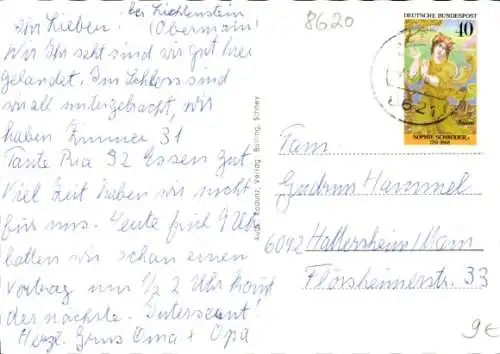 bei Lichtenstein
Ihr Lieben! (Obermain)
Wie Ihr seht sind wir gut hier
gelandet. Im Schloss sind
wir all untergebracht, wir
haben Zimmer 31
Tante Pia 32 Essen gut
Viel Zeit haben wir nicht
für uns. Heute früh 9 Uhr
hatten wir schon einen
Vortrag um 1/2 2 Uhr kommt
der nächste. Interssant!
Herzl. Gruss Oma + Opa
8620
DEUTSCHE BUNDESPOST
40
SOPHIE SCHRÖDER
1781-1868
8621
Fam
Gudrun Hammel
6092 Hattersheim/Main
Flörsheimerstr. 33
Verlag
9€